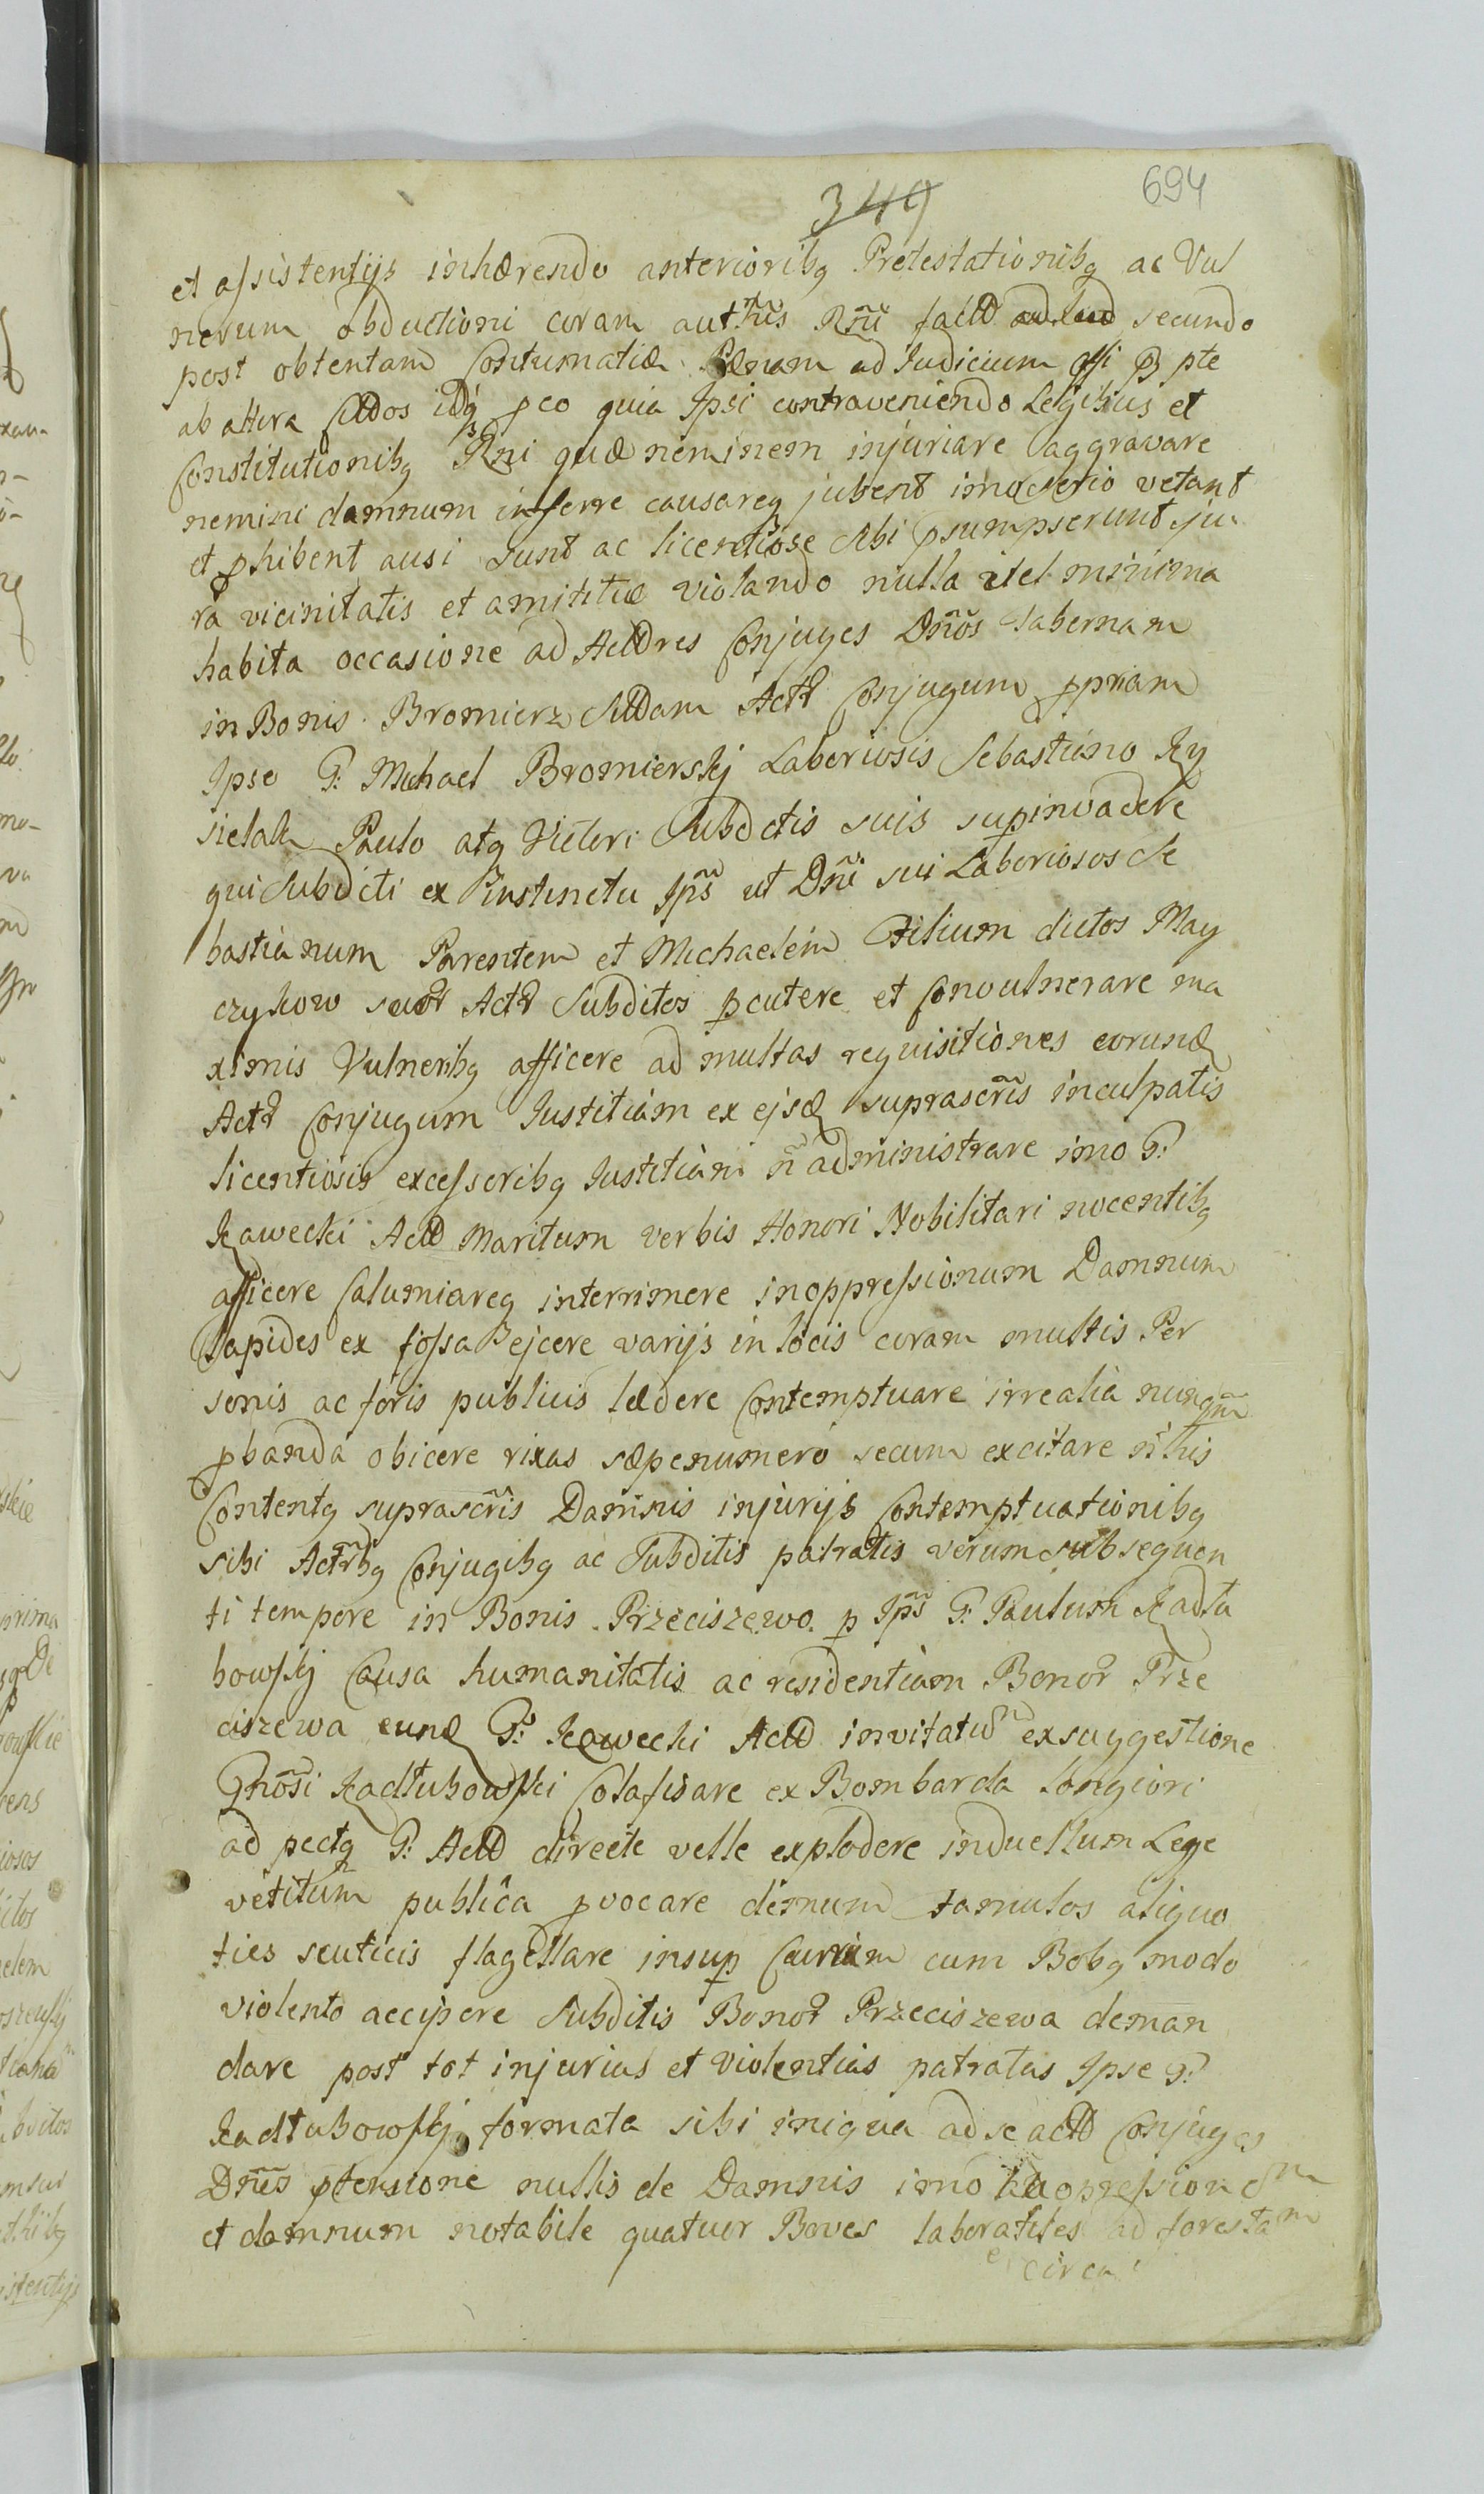 349
694
et assistentijs inhærendo anterioribq Protestationibq ac Vul
nerum obductioni coram auth̃ũs Rñi factd secundo
post obtentam Contumatiæ Pænam ad Iudicium pte
ab altera Cittdos idq̃ pco quia Ipsi contraveniendo Legibus et
Constitutionibq Rñi quæ neminem injuriare aggravare
nemini damnum inferre causareq jubent imo serio vetant
et phibent ausi sunt ac licentiose sibi psumpserunt ju
ra vicinitatis et amititiæ violando nulla vel minima
habita occasione ad Acttdres Conjuges Dños Tabernam
in Bonis Bromierz Sittdam Act̃r Conjugum ppriam
Ipse G: Michael Bromierskj Laboriosis Sebastiano Ky
sielak Paulo atq Victori Subdctis suis supinvadere
qui Subdicti ex Instinctu Ips̃ ut Dñi sui Laboriosos Se
bastianum Parentem et Michaelem Filium dictos May
czykow suor Actr Subditos pcutere et Convulnerare ma
ximis Vulneribq afficere ad multas requisitiones eorund
Actr Conjugum Iustitiam ex ejsd suprascr̃is inculpatis
licentiosis excessoribq Iustitiam ñ administrare imo G:
Kawecki Acttd Maritum verbis Honori Nobilitari nocentibq
afficere Calumiareq interrimere inoppressionum Damnum
Lapides ex fossa ejcere varijs in locis coram multis Per
sonis ac foris publicis lædere Contemptuare irrealia nunqm̃
pbanda obicere rixas sæpenumero secum excitare ñ his
Contentq suprascr̃is Damnis injurijs Contemptuationibq
sibi Actr̃bq Conjugibq ac Subditis patratis verum subsequen
ti tempore in Bonis Przeciszewo p Ips̃ G: Paulum Kadłu
bowskj Causa humanitatis ac residentiam Bonor Prze
ciszewa eund G: Kawecki Acttd invitatum ex suggestione
Gnõsi Kadłubowski Colafisare ex Bombarda longiori
ad pectq G: Acttd directe velle explodere induellum Lege
vetitum publica pvocare demum famulos aliquo
ties scuticis flagellare insup Currum cum Bobq modo
violento accipere Subditis Bonor Przeciszewa deman
dare post tot injurias et violentias patratas Ipse G:
Kadłubowskj formata sibi iniqua ad se acttd Conjuges
Dños ptensione nullis de Damnis imo opressionem
et damnum notabile quatuor Boves laboratiles ad forestam
circa